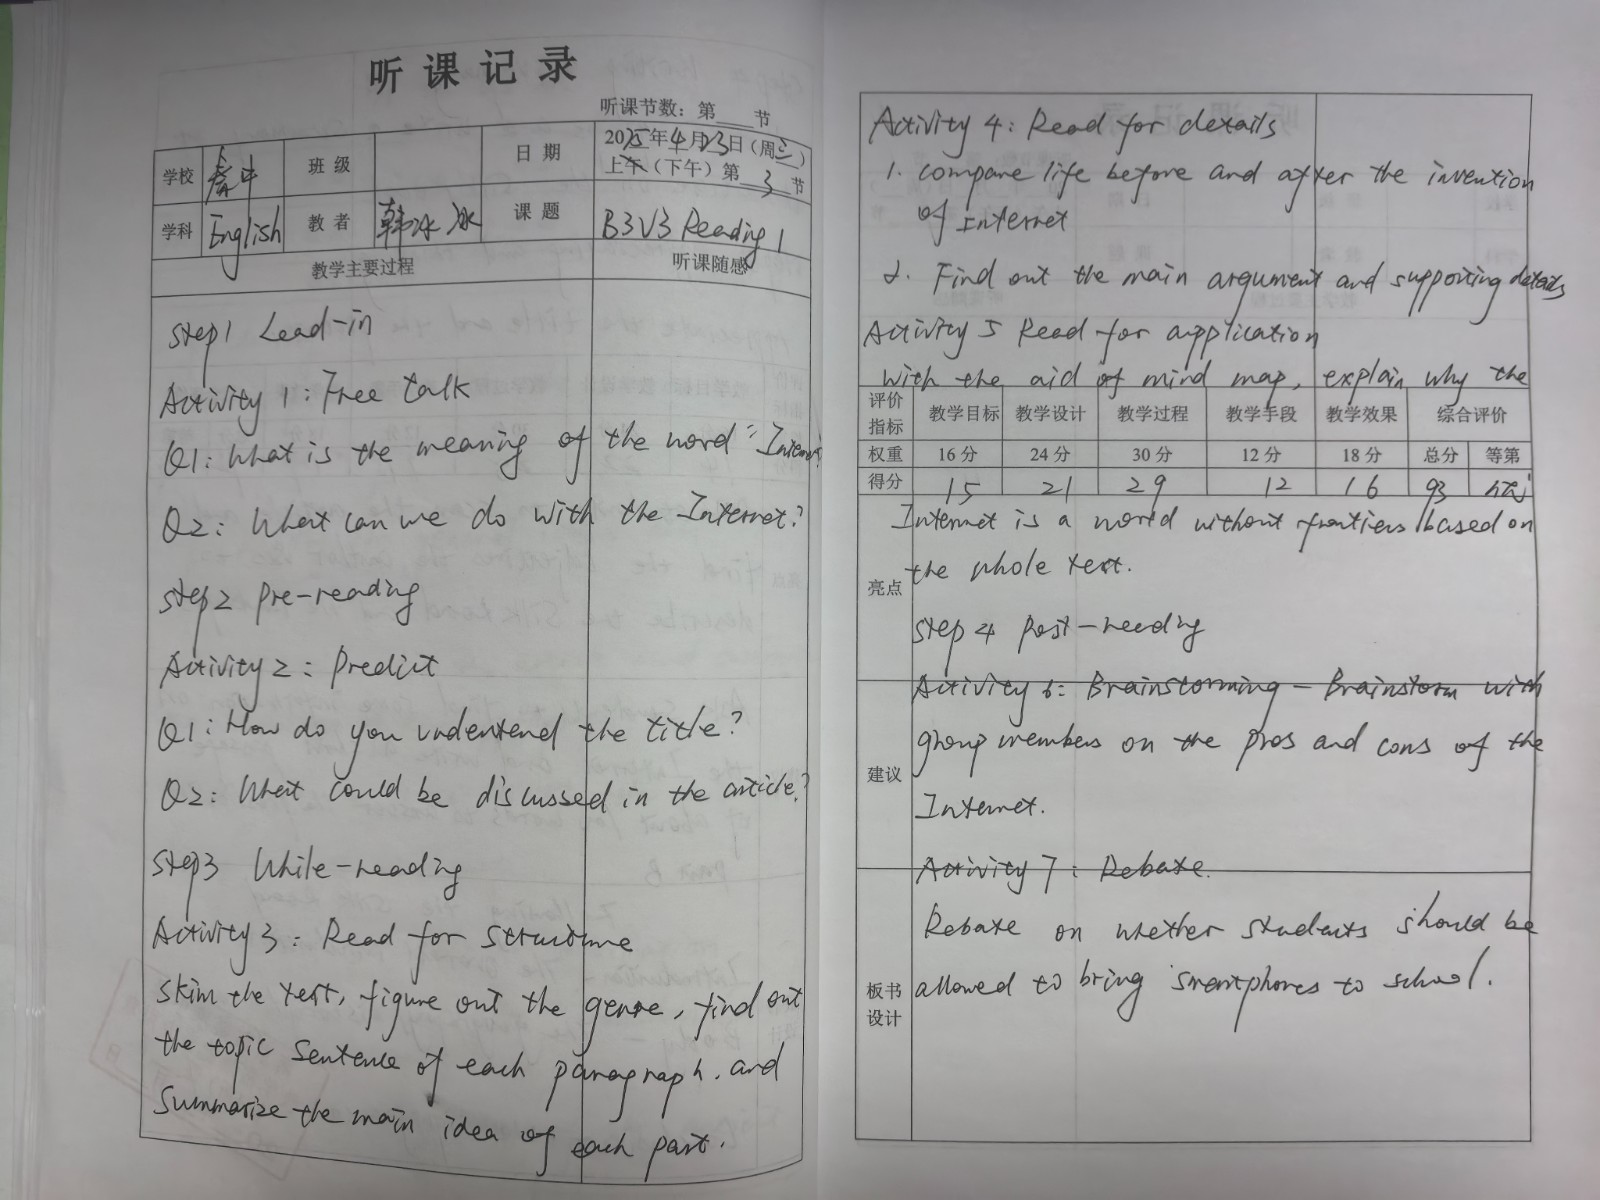 听课记录
听课节数：第 节
学校 班级 日期 2025年4月23日（周三）
上午（下午）第3节
学科 English 教者 韩冰冰 课题 B3U3 Reading 1
教学主要过程 听课随感
Step1 Lead-in
Activity 1: Free talk
Q1: What is the meaning of the word "Internet"?
Q2: What can we do with the Internet?
Step2 Pre-reading
Activity 2: Predict
Q1: How do you understand the title?
Q2: What could be discussed in the article?
Step3 While-reading
Activity 3: Read for structure
Skim the text, figure out the genre, find out
the topic sentence of each paragraph. and
summarize the main idea of each part.
Activity 4: Read for details
1. compare life before and after the invention
of Internet
2. Find out the main argument and supporting details
Activity 5 Read for application
with the aid of mind map, explain why the
评价指标 教学目标 教学设计 教学过程 教学手段 教学效果 综合评价
权重 16分 24分 30分 12分 18分 总分 等第
得分 15 21 29 12 16 93
Internet is a world without frontiers based on
亮点 the whole text.
Step 4 Post-reading
Activity 6: Brainstorming - Brainstorm with
建议 group members on the pros and cons of the
Internet.
Activity 7: Debate.
Debate on whether students should be
板书设计 allowed to bring smartphones to school.